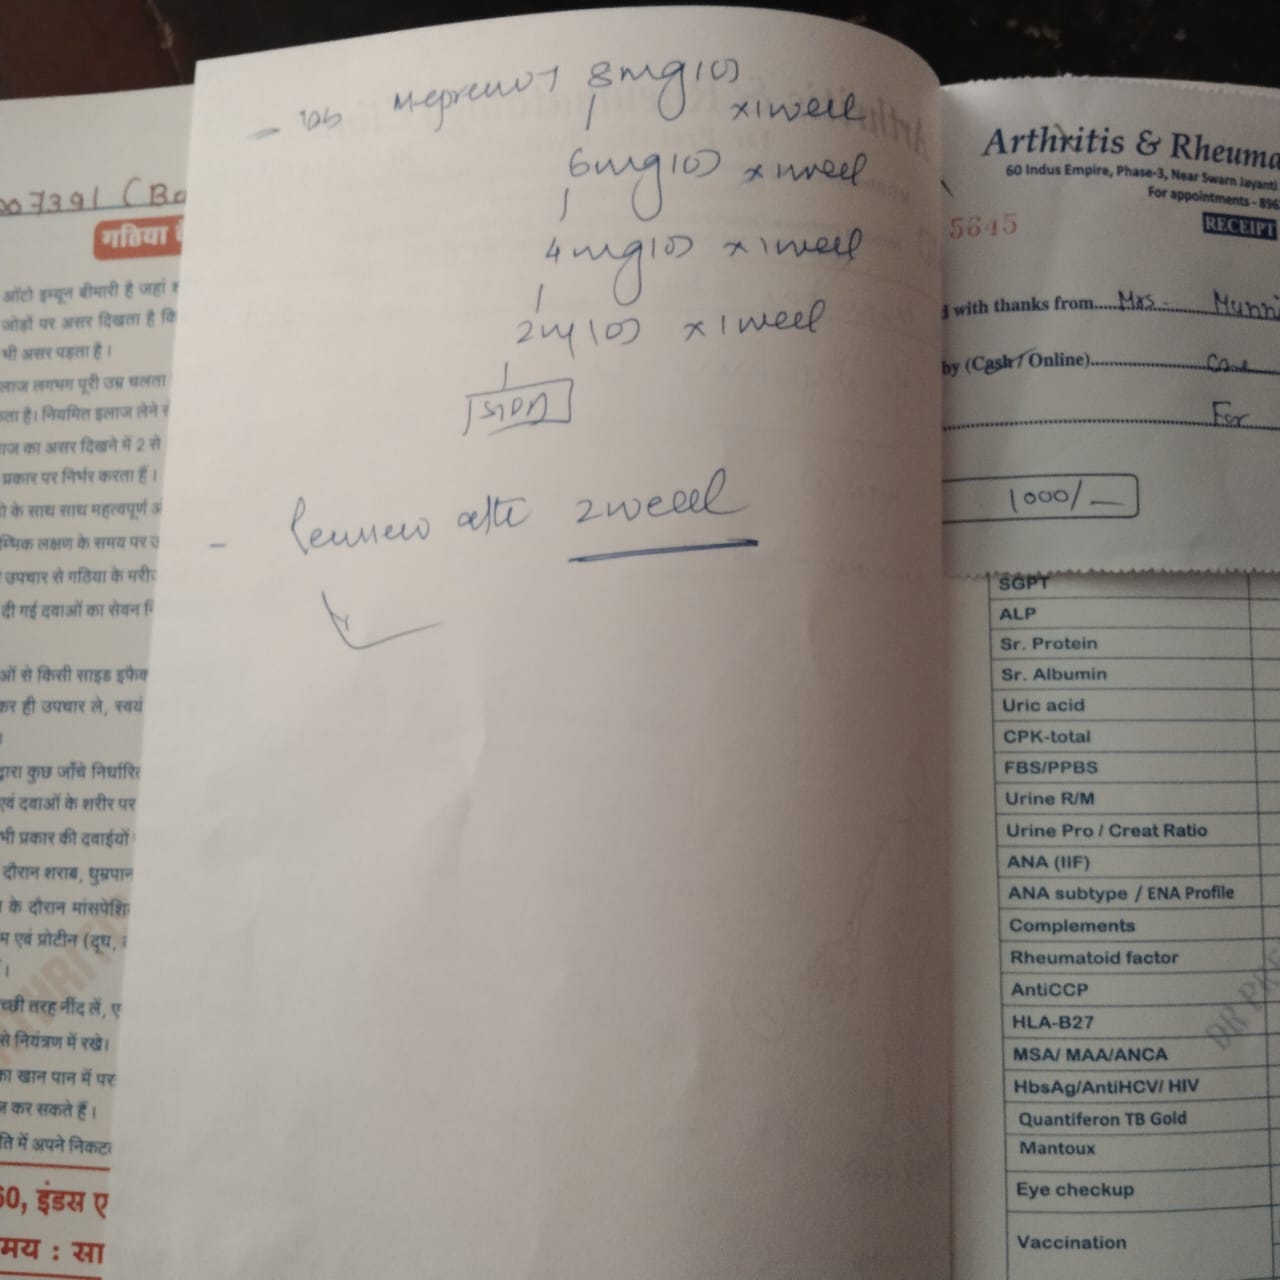 Tab 8mg 1OD x 1 week
6mg 1OD x 1 week
4mg 1OD x 1 week
2mg 1OD x 1 week
STOP
- Review after 2 week
007391 (Ba
गठिया
ऑटो इम्यून बीमारी है जहां
जोड़ों पर असर दिखता है कि
भी असर पड़ता है।
लाज लगभग पूरी उम्र चलता
नियमित इलाज लेने से
का असर दिखने में 2 से
प्रकार पर निर्भर करता हैं।
के साथ साथ महत्वपूर्ण
म्भिक लक्षण के समय पर
उपचार से गठिया के
दी गई दवाओं का सेवन
ओं से किसी साइड इफैक्
कर ही उपचार ले, स्वयं
द्वारा कुछ जाँचे निर्धारित
एवं दवाओं के शरीर पर
भी प्रकार की दवाईयों
दौरान शराब, धुम्रपान
के दौरान मांसपेशि
एवं प्रोटीन (दूध,
च्छी तरह नींद लें,
से नियंत्रण में रखे।
का खान पान में
कर सकते हैं।
में अपने निकट
60, इंडस ए
मय : सा
Arthritis & Rheuma
60 Indus Empire, Phase-3, Near Swarn Jayanti
For appointments - 896
5645 RECEIPT
with thanks from Mrs. Munni
by (Cash / Online)
For
1000/_
SGPT
ALP
Sr. Protein
Sr. Albumin
Uric acid
CPK-total
FBS/PPBS
Urine R/M
Urine Pro / Creat Ratio
ANA (IIF)
ANA subtype / ENA Profile
Complements
Rheumatoid factor
AntiCCP
HLA-B27
MSA/ MAA/ANCA
HbsAg/AntiHCV/ HIV
Quantiferon TB Gold
Mantoux
Eye checkup
Vaccination
DR PRE